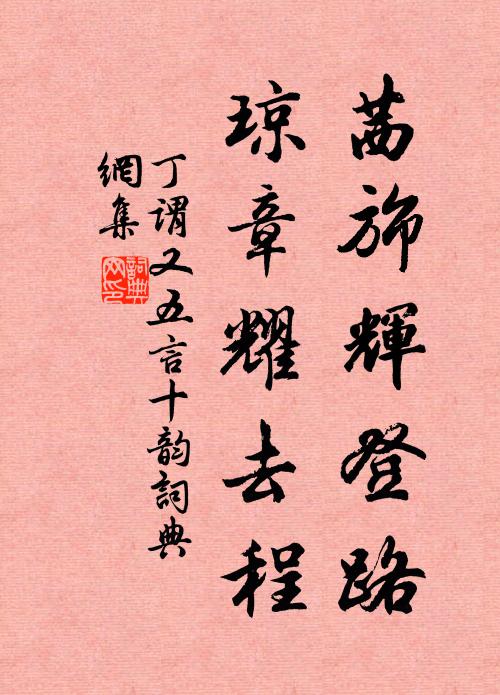 茜斾輝登路
琼章耀去程
丁謂又五言十韵詞典
網集
詞典
网印